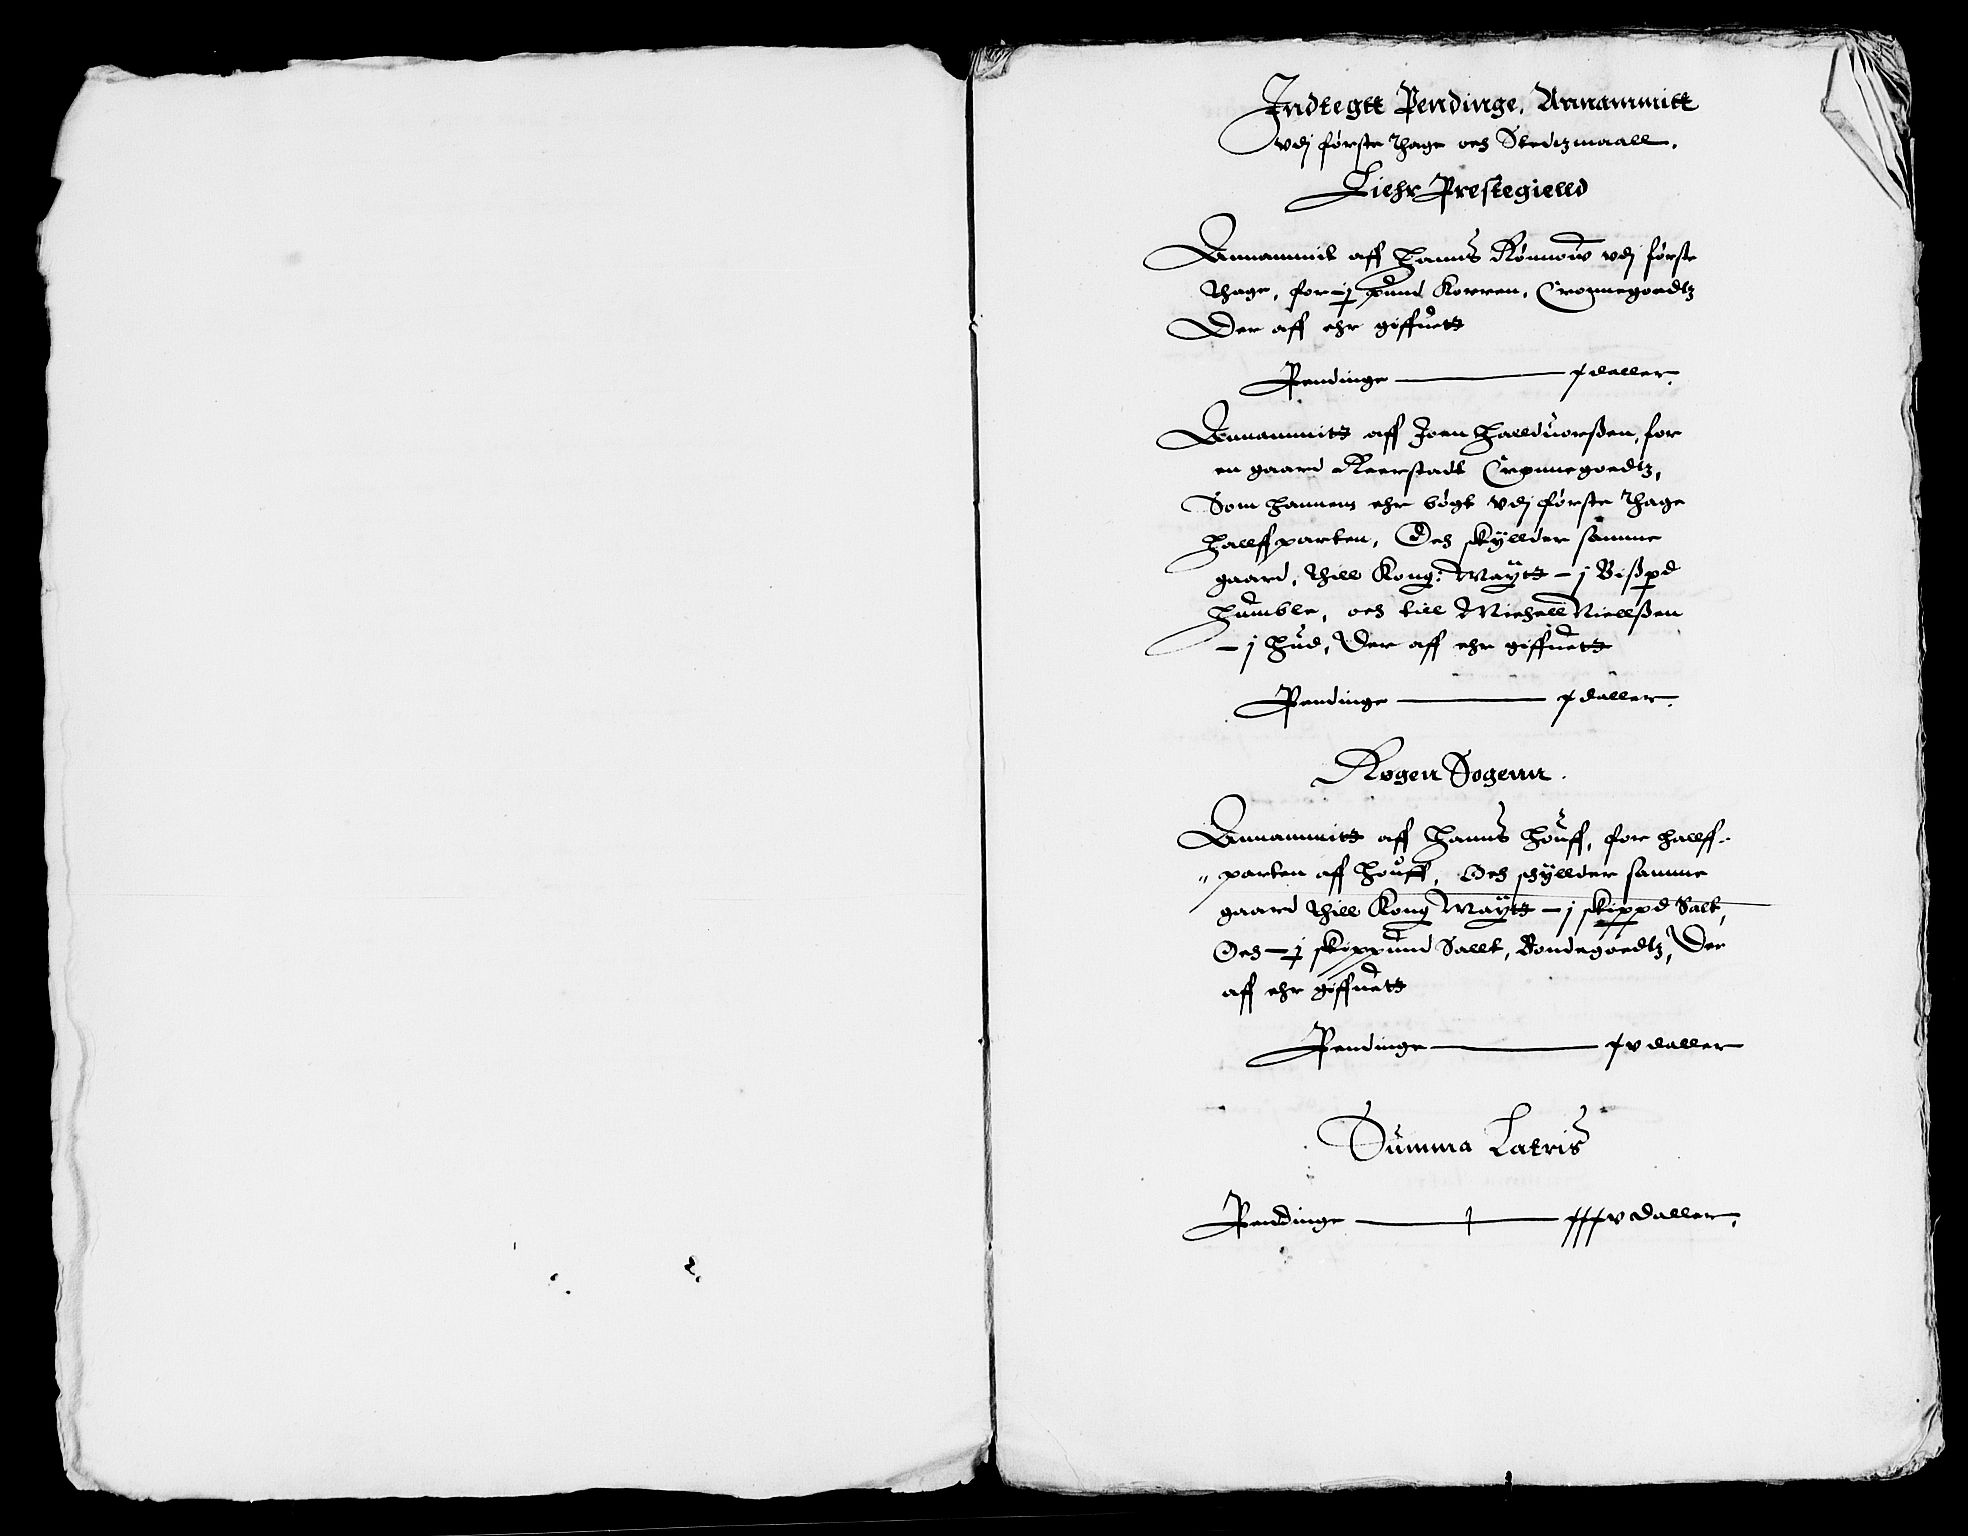 Indtegtt Pendinge, Annammitt
vdj første Thage och Stedtzmaall.
Liehr Prestegielld
Annammit aff Hanns Rönnow vdj første
Thage, for - j pund Korren, Cronnegoedtz
Der aff ehr giffuett
Pendinge ——— x daller.
Annammitt aff Joen Halduorßen, for
en gaard Kierstadt Cronnegoedtz,
Som hannem ehr bögt vdj første Thage
Hallffparten, Och skÿllder samme
gaard, thill Kong: Maÿtt - j Bißpd
Humble, och till Michell Niellßen
- j Hud, Der aff ehr giffuett
Pendinge ——— x daller.
Rogen Sogenn.
Annammitt aff Hanns Houff, for hallff-
" parten aff Houff, Och skÿllder samme
gaard thill Kong Maÿtt - j skippd Salt,
Och - j skippund Sallt, Bondegoedtz, Der
aff ehr giffuett
Pendinge ——— xv daller
Summa Latris
Pendinge ——— xxxv daller.